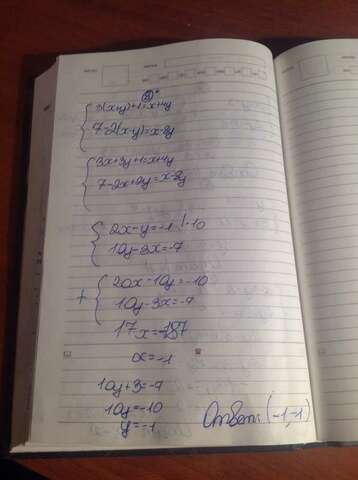 3(x+y)+1=x+4y
7-2(x-y)=x-8y
3x+3y+1=x+4y
7-2x+2y=x-8y
2x-y=-1 |·10
10y-3x=-7
+
20x-10y=-10
10y-3x=-7
17x=-17
x=-1
10y+3=-7
10y=-10
y=-1
Ответ: (-1;-1)